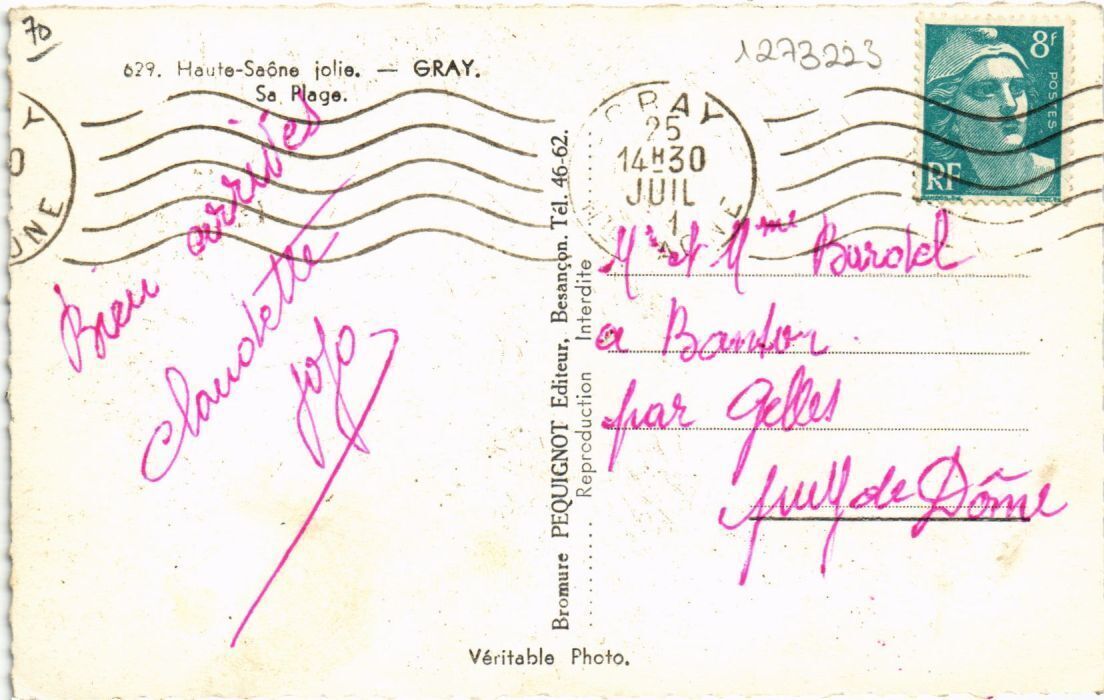 70
629. Haute-Saône jolie. — GRAY.
Sa Plage.
1273223
8F
POSTES
RF
GRAY
25
14H30
JUIL
1
Bien arrivés
Claudette
jojo
Bromure PEQUIGNOT Editeur, Besançon. Tél. 46-62.
Reproduction Interdite
Mr et Mme
a
par Gelles
puy de Dôme
Véritable Photo.